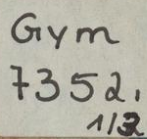 Gym
7352,
1/32